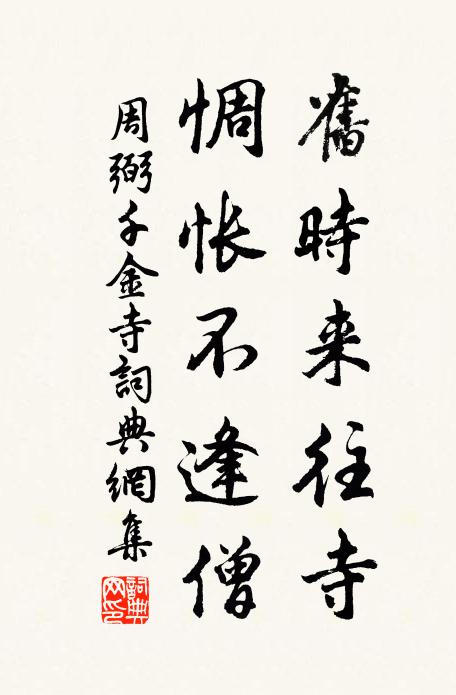 舊時来往寺
惆怅不逢僧
周弼千金寺詞典網集
詞典網印